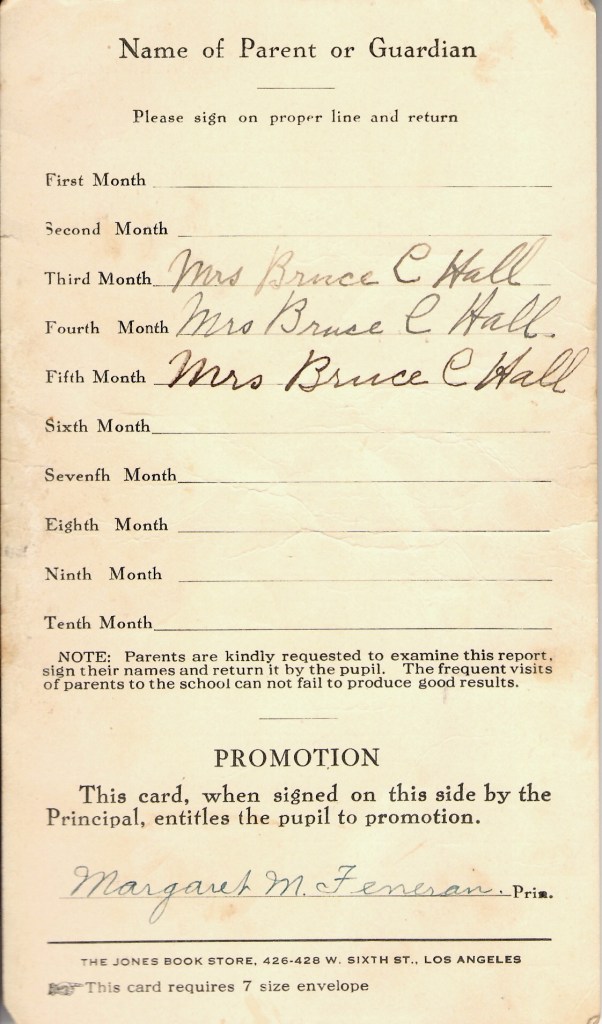 Name of Parent or Guardian
Please sign on proper line and return
First Month
Second Month
Third Month Mrs Bruce C Hall
Fourth Month Mrs Bruce C Hall.
Fifth Month Mrs Bruce C Hall
Sixth Month
Sevenfh Month
Eighth Month
Ninth Month
Tenth Month
NOTE: Parents are kindly requested to examine this report,
sign their names and return it by the pupil. The frequent visits
of parents to the school can not fail to produce good results.
PROMOTION
This card, when signed on this side by the
Principal, entitles the pupil to promotion.
Margaret M. Feneran. Prin.
THE JONES BOOK STORE, 426-428 W. SIXTH ST., LOS ANGELES
☞ This card requires 7 size envelope